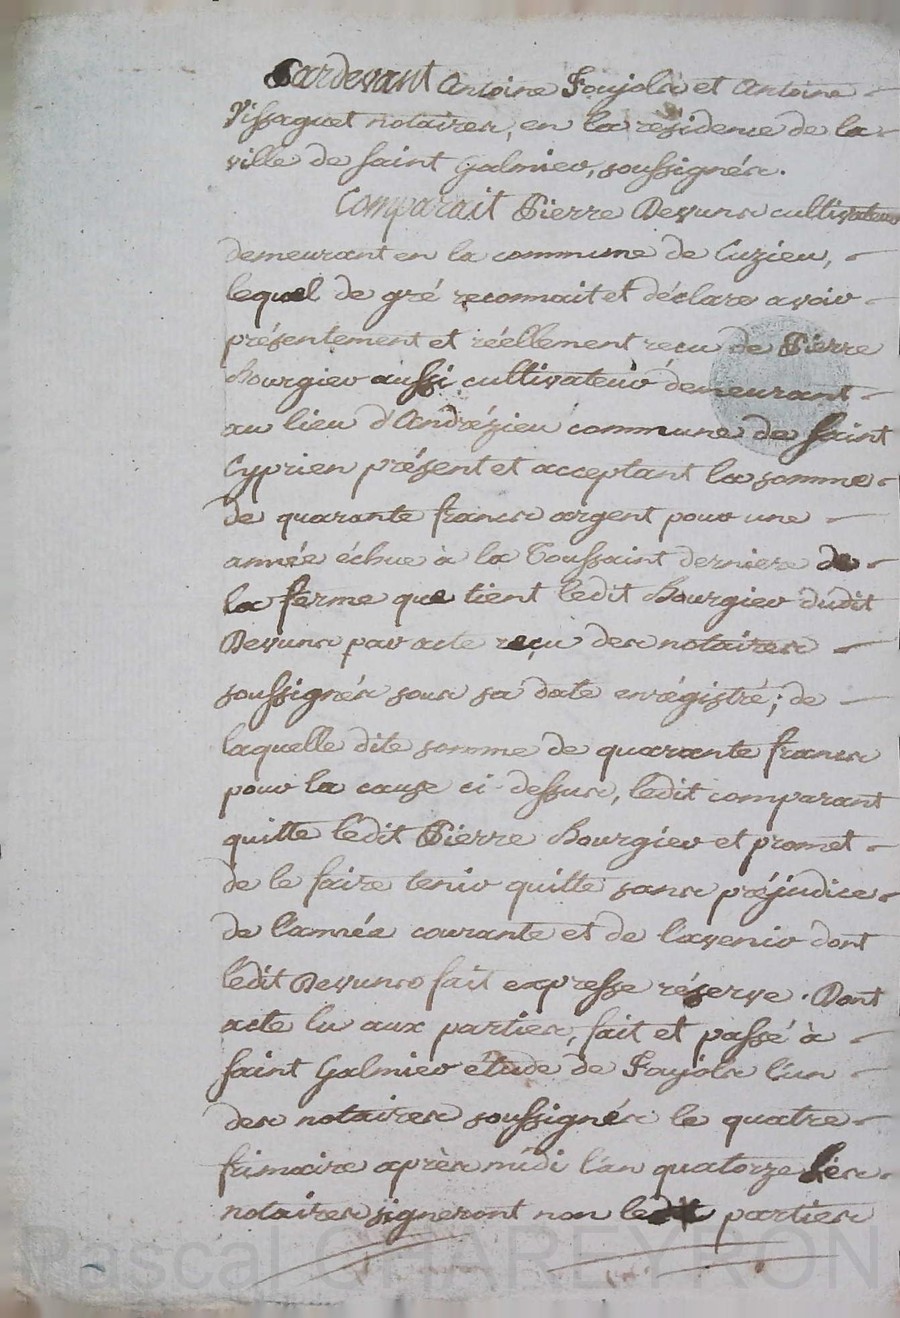 Pardevant Antoine Foujols et Antoine
Vissaguet notaires, en la résidence de la
ville de saint Galmier, soussignés.
Comparait Pierre Devuns cultivateur
demeurant en la commune de Cuzieu,
lequel de gré reconnait et déclare avoir
présentement et réellement recu de Pierre
Bourgier aussi cultivateur demeurant
au lieu d'Andrézieu commune de saint
Cyprien présent et acceptant la somme
de quarante francs argent pour une
année échue à la Toussaint derniere de
la ferme que tient ledit Bourgier dudit
Devuns par acte reçu des notaires
soussignés sous sa date enrégistré; de
laquelle dite somme de quarante francs
pour la cause ci-dessus, ledit comparant
quitte ledit Pierre Bourgier et promet
de le faire tenir quitte sans préjudice
de l'année courante et de l'avenir dont
ledit Devuns fait expresse réserve. Dont
acte lu aux parties, fait et passé à
saint Galmier étude de Foujols l'un
des notaires soussignés le quatre
frimaire après midi l'an quatorze les
notaires signeront non les parties
Pascal CHAREYRON